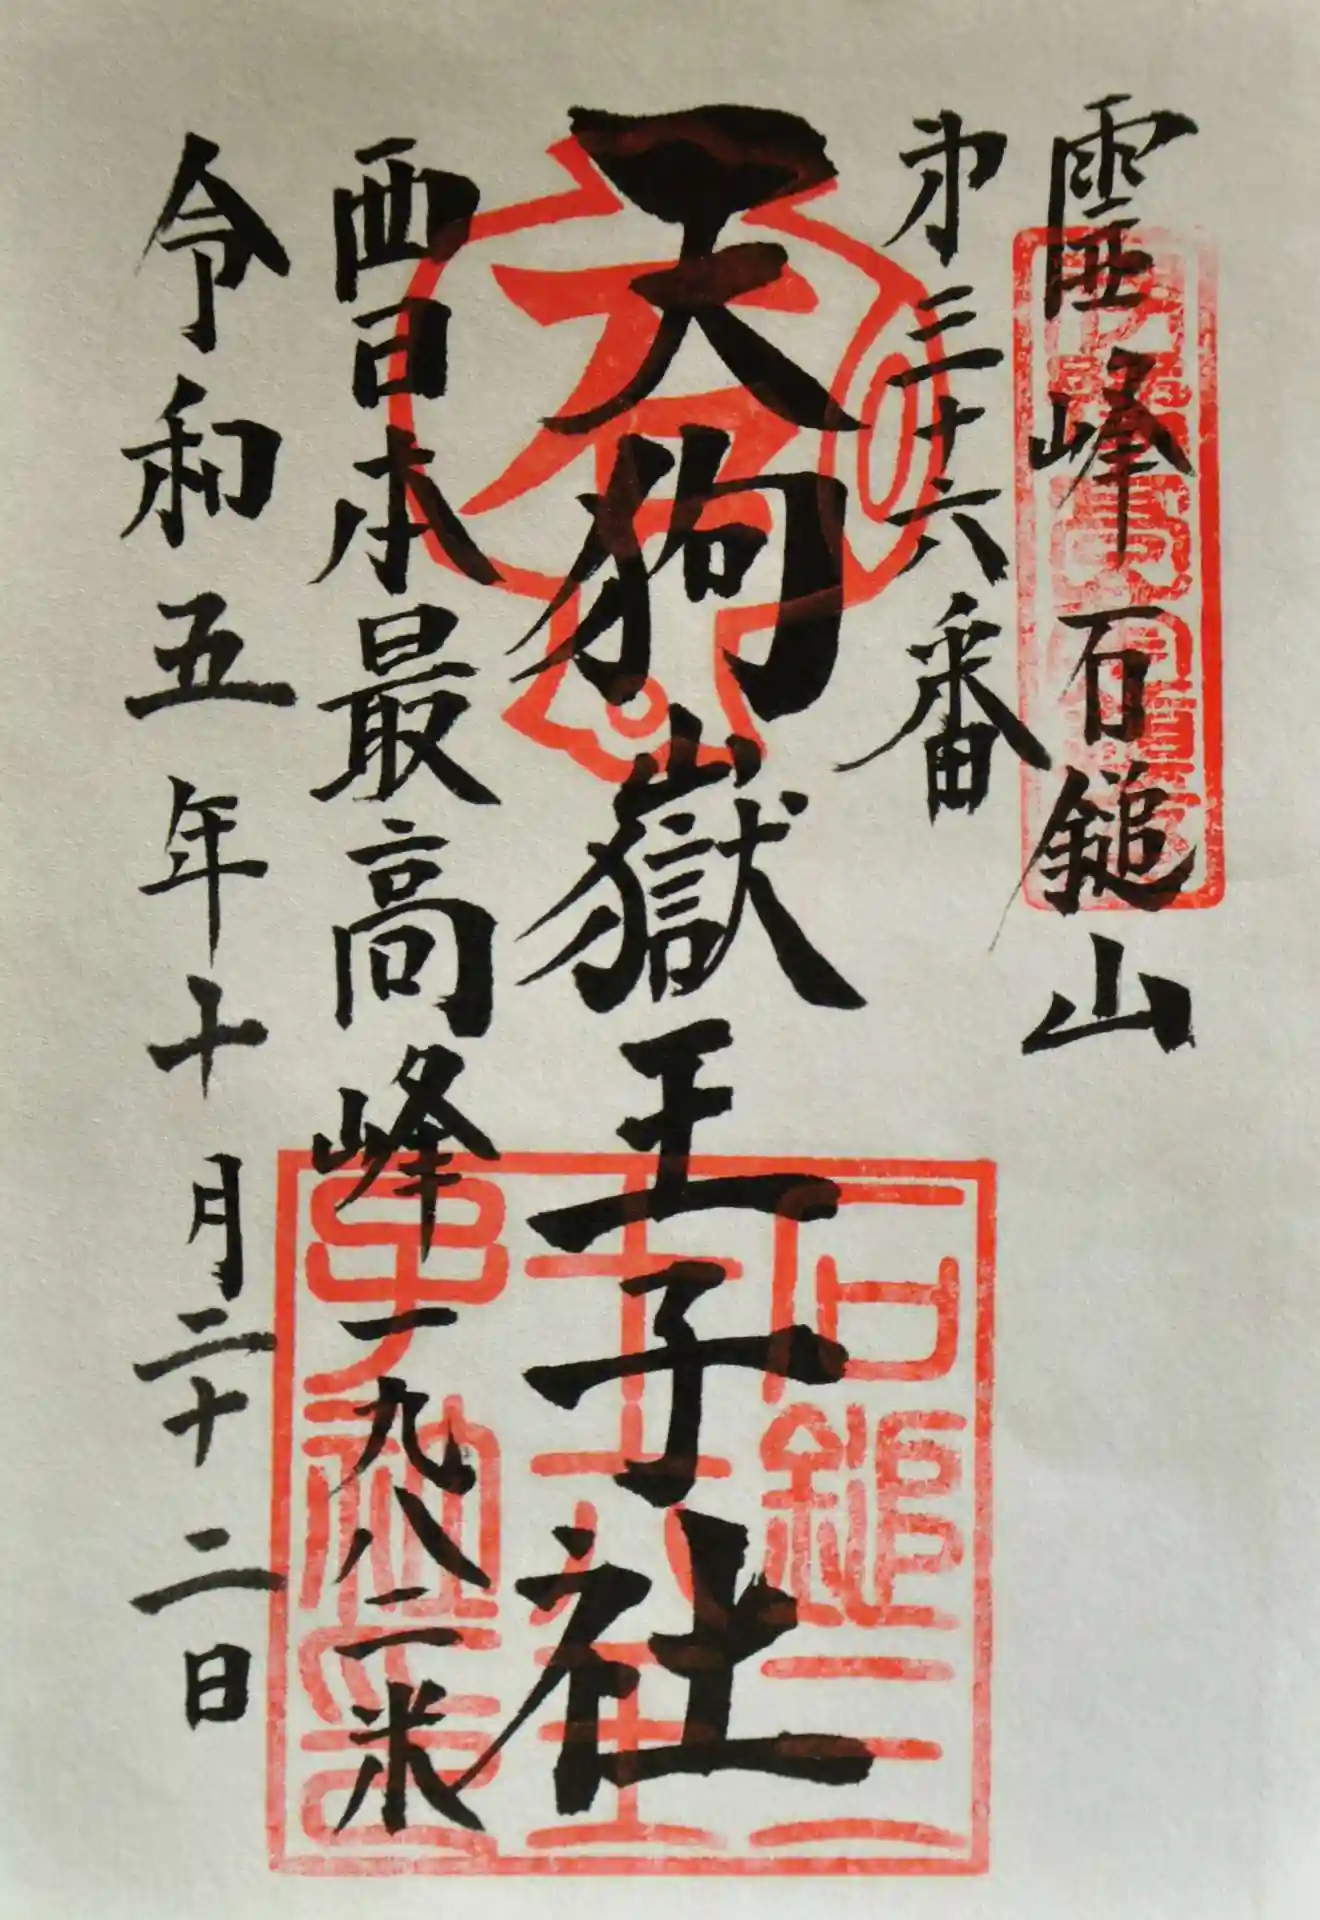 霊峰石鎚山
第三十六番
天狗嶽王子社
西日本最高峰一九八二米
令和五年十月二十二日
石鎚三
十六王
子社印